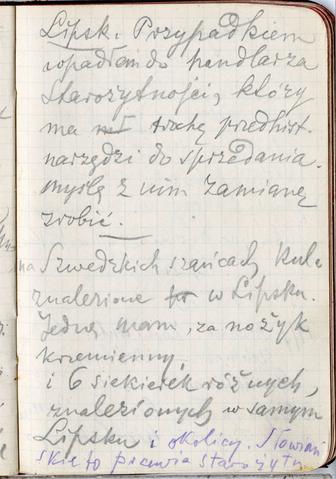 Lipsk. Przypadkiem
wpadłem do handlarza
Starożytności, który
ma trochę przedhist.
narzędzi do sprzedania.
myślę z nim zamianę
zrobić.
na Szwedzkich szańcach kule
znalezione w Lipsku.
Jedną mam, za nożyk
krzemienny,
i 6 siekierek różnych,
znalezionych w samym
Lipsku i okolicy. Słowiań
skie to prawia starożytn